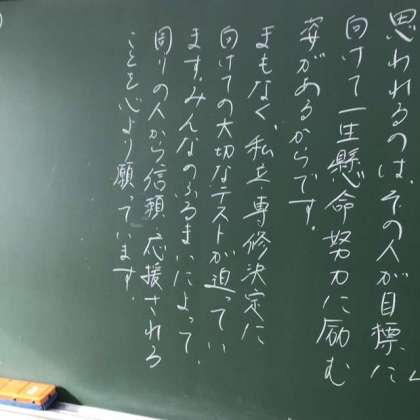 思われるのは、その人が目標に
向けて一生懸命努力に励む
姿があるからです。
まもなく、私立・専修決定に
向けての大切なテストが迫ってい
ます。みんなのふるまいによって、
周りの人から信頼、応援される
ことを心より願っています。